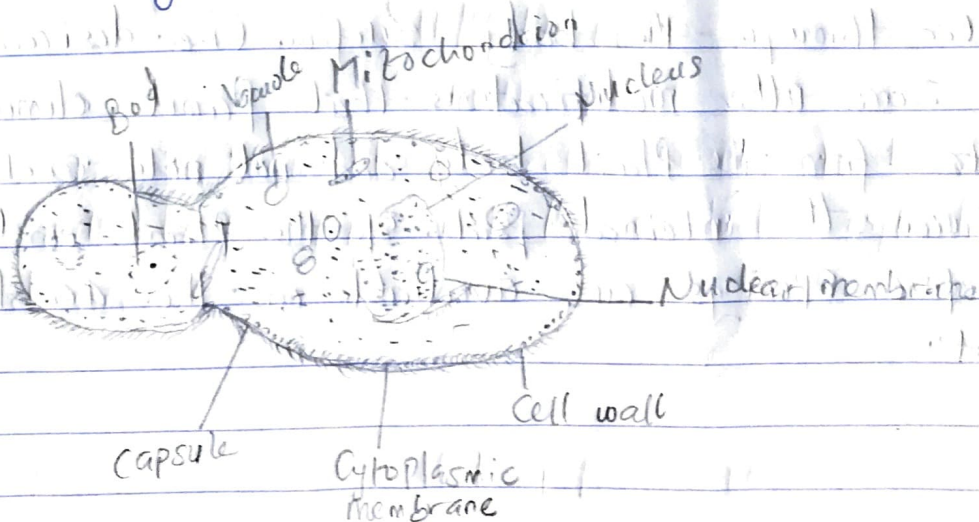 Bod
Vauole
Mitochondrion
Nucleus
Nuclear membrane
Cell wall
Capsule
Cytoplasmic
membrane